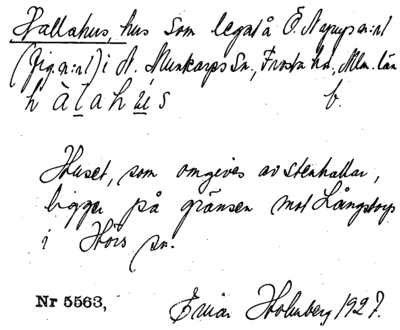 Hallahus, hus som legat å Ö. Nyrup n:r 1
(fig. n:r 1) i N. Munkarps sn., Frosta hd., Mlm. län
hàlahus f.
Huset, som omgives av stenhallar,
ligger på gränsen mot Långstorp
i Hörs sn.
Nr 5563, Einar Holmberg 1927.